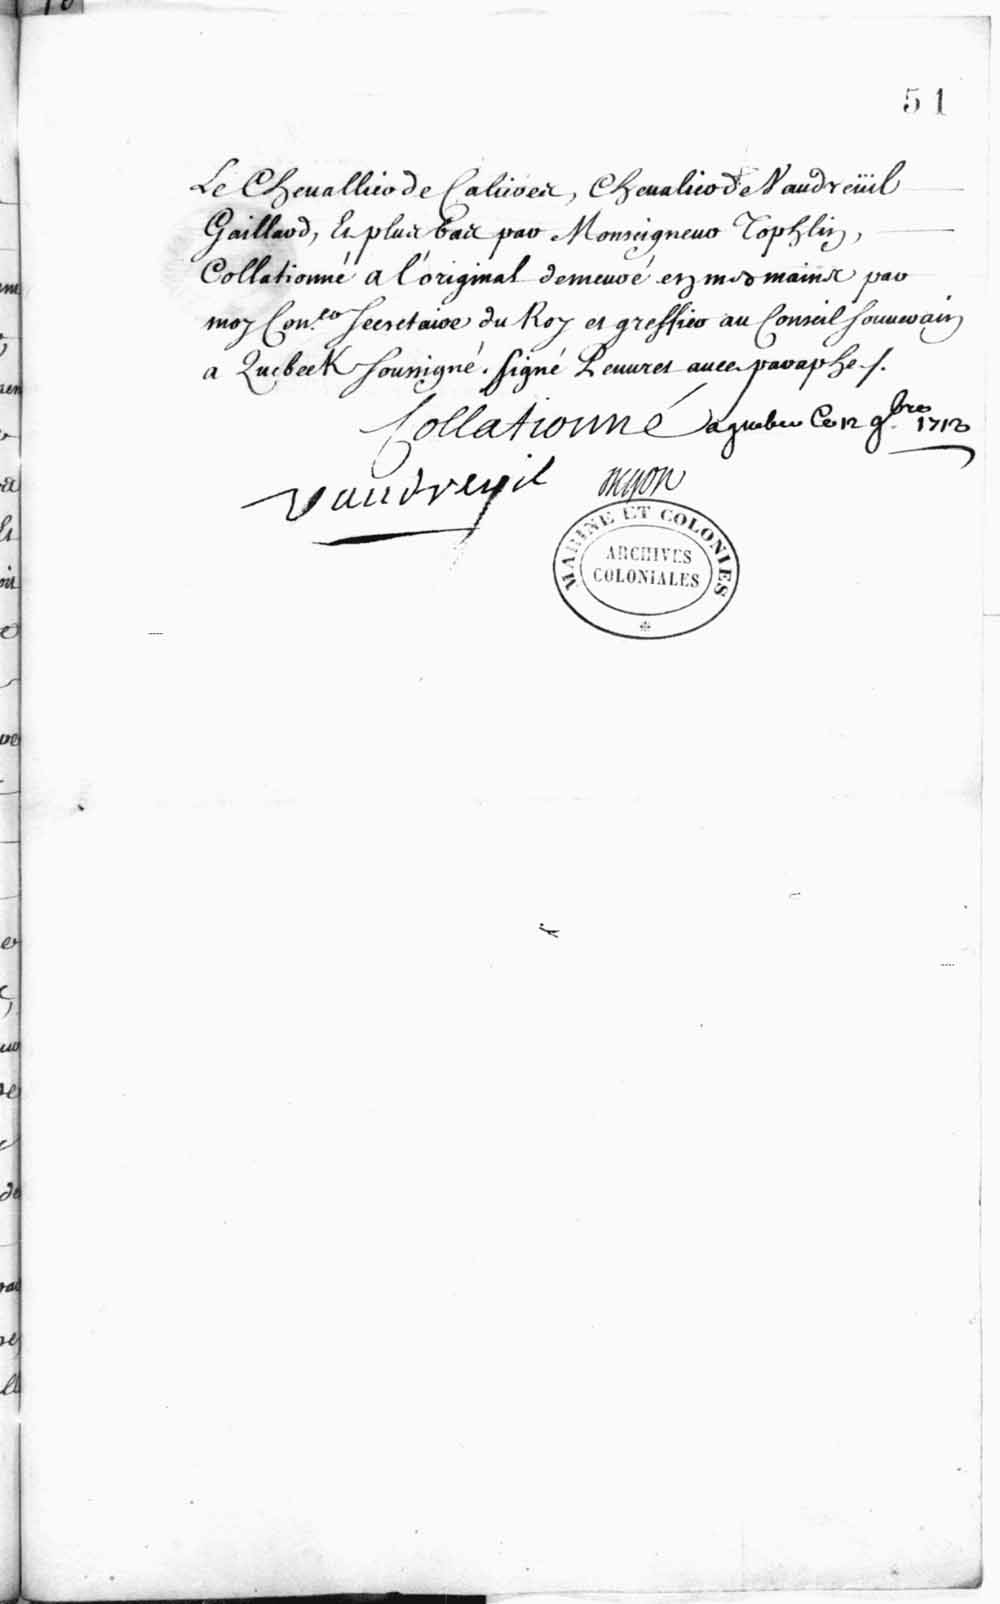 51
Le Cheuallier de Callieres, Cheualier de Vaudreüil
Gaillard, Et plus bas par Monseigneur
Collationné a l'original demeuré en mes mains par
moy Con.er Secretaire du Roy et greffier au Conseil souuerain
a Quebeck soussigné. signé Peuuret auec paraphe /.
Collationné a quebec Ce 12 9.bre
Vaudreuil
MARINE ET COLONIES
ARCHIVES
COLONIALES